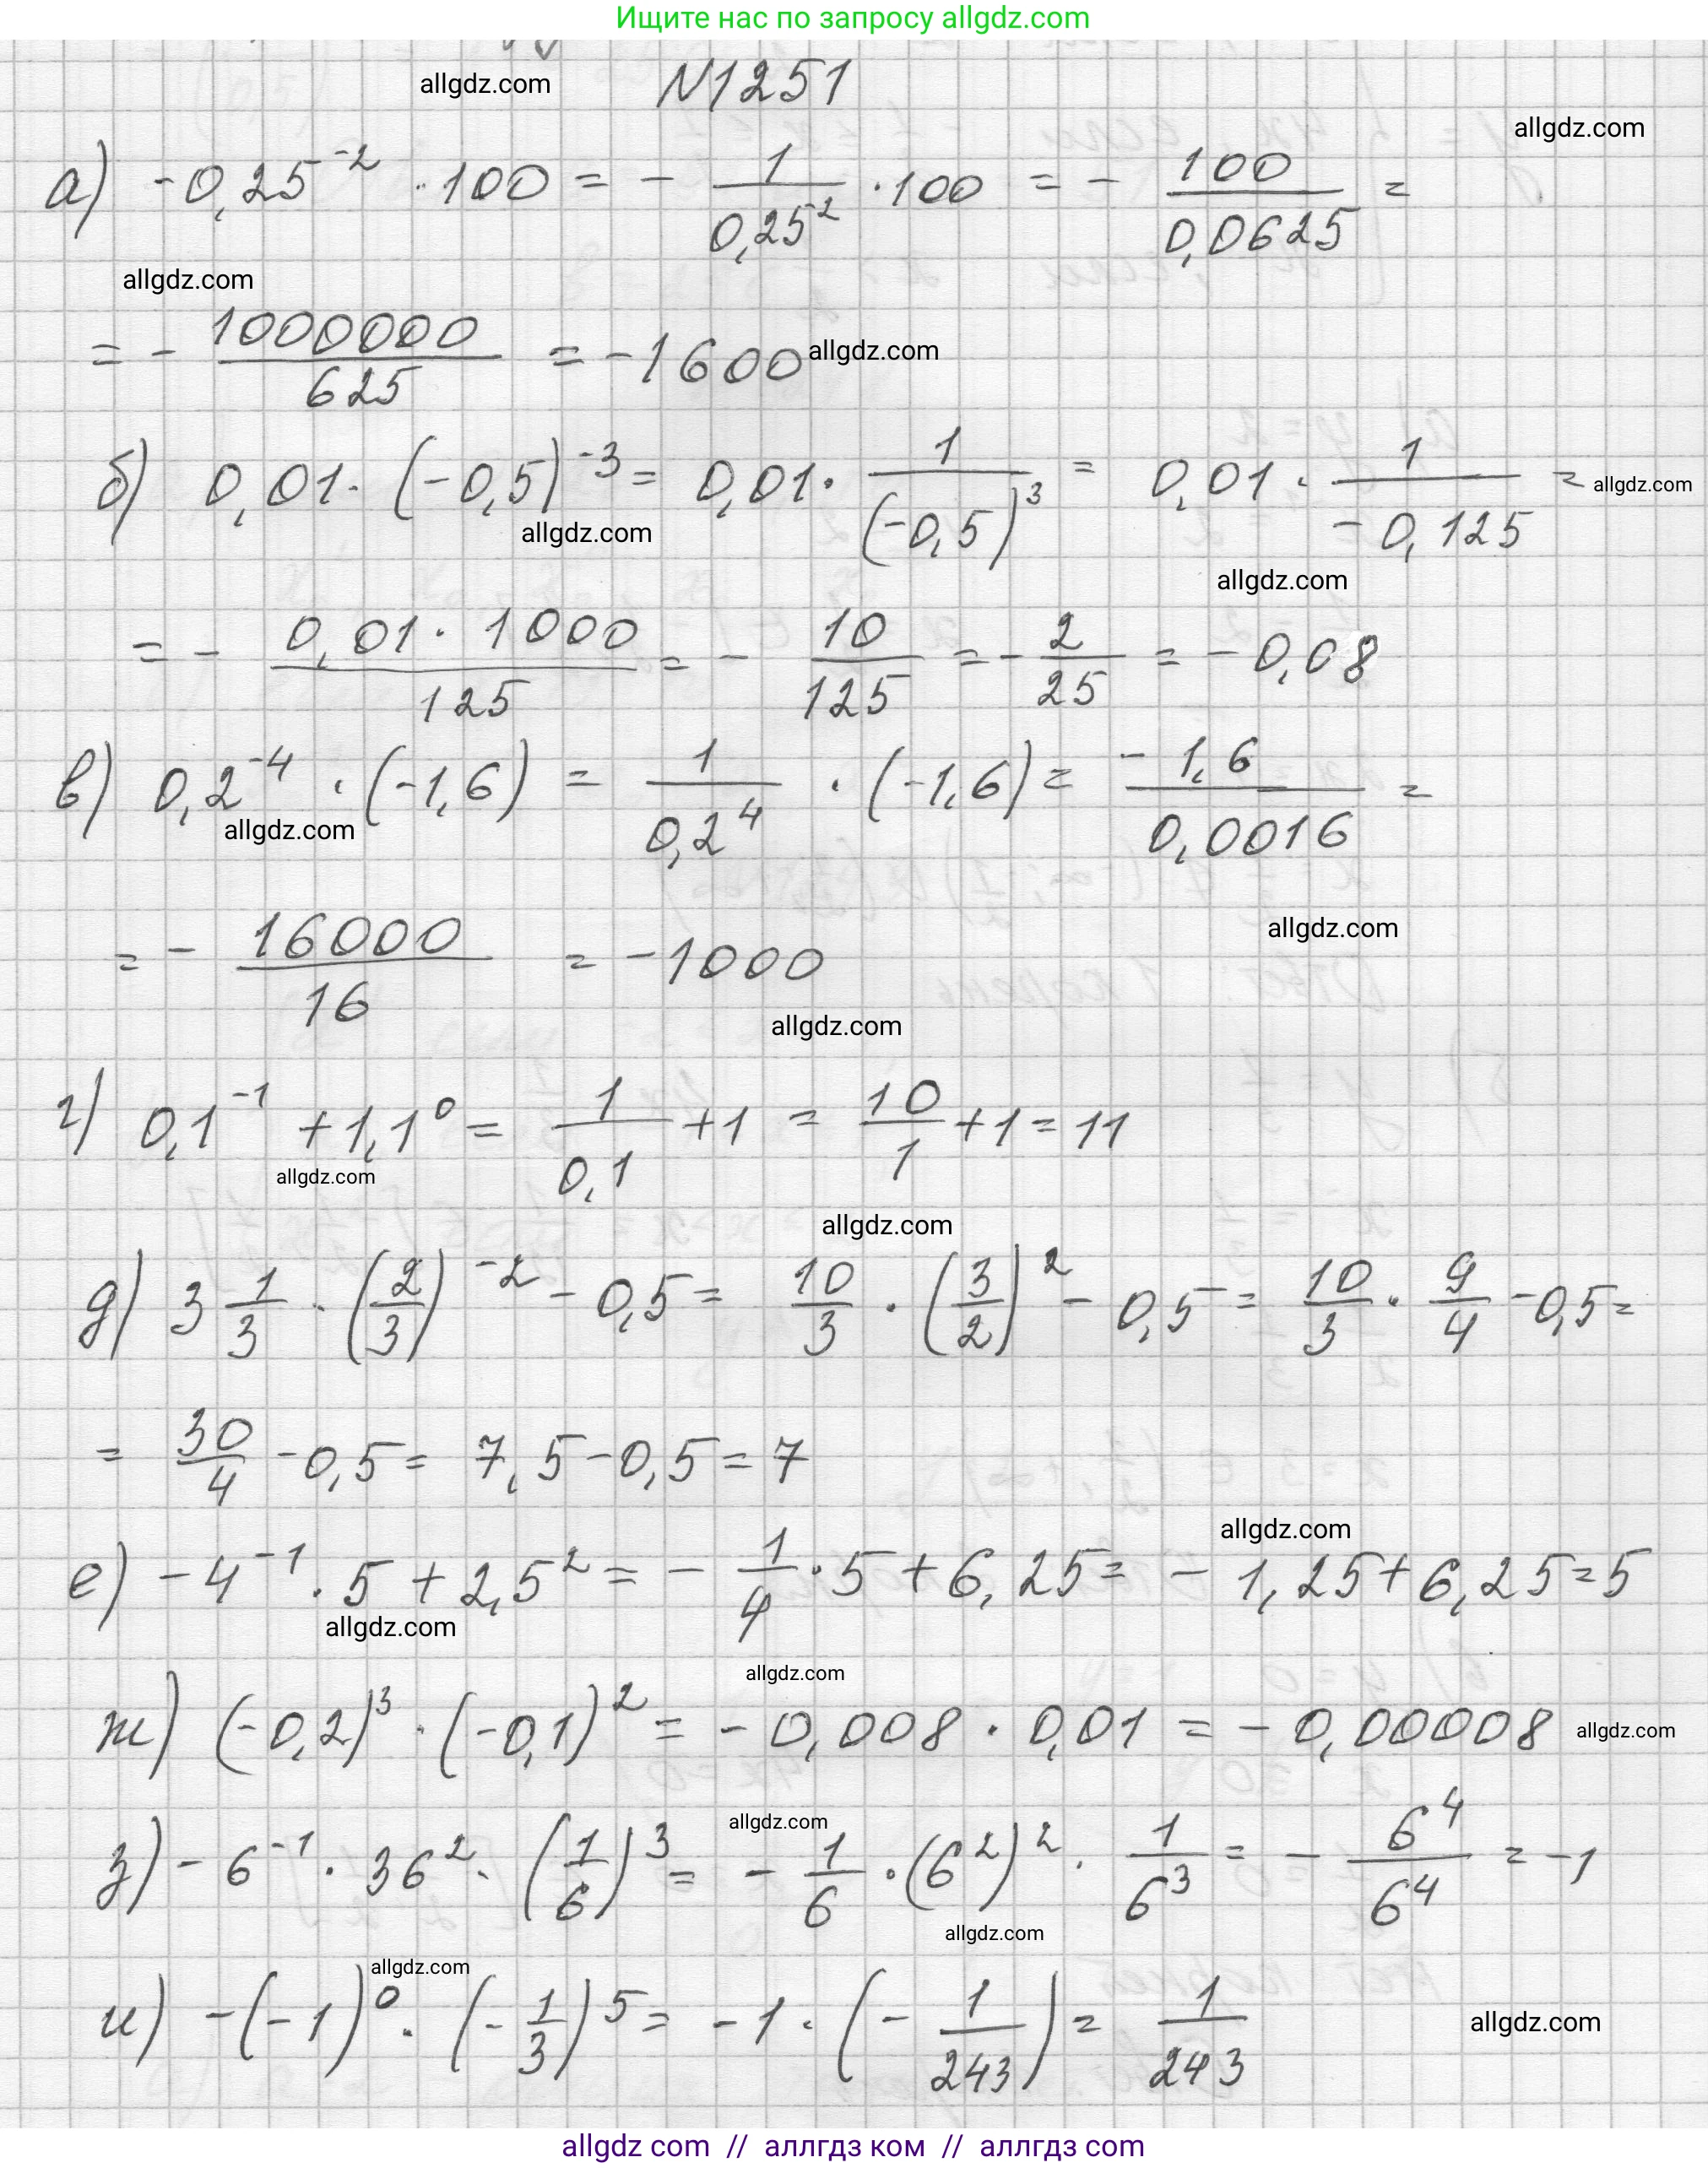 Ищите нас по запросу allgdz.com
allgdz.com
N1251
allgdz.com
а) -0,25^-2 · 100 = - 1/0,25^2 · 100 = - 100/0,0625 =
allgdz.com
= - 1000000/625 = -1600 allgdz.com
б) 0,01 · (-0,5)^-3 = 0,01 · 1/(-0,5)^3 = 0,01 · 1/-0,125 = allgdz.com
allgdz.com
allgdz.com
= - 0,01 · 1000/125 = - 10/125 = - 2/25 = -0,08
в) 0,2^-4 · (-1,6) = 1/0,2^4 · (-1,6) = -1,6/0,0016 =
allgdz.com
allgdz.com
= - 16000/16 = -1000
allgdz.com
г) 0,1^-1 + 1,1^0 = 1/0,1 + 1 = 10/1 + 1 = 11
allgdz.com
allgdz.com
д) 3 1/3 · (2/3)^-2 - 0,5 = 10/3 · (3/2)^2 - 0,5 = 10/3 · 9/4 - 0,5 =
= 30/4 - 0,5 = 7,5 - 0,5 = 7
allgdz.com
е) -4^-1 · 5 + 2,5^2 = - 1/4 · 5 + 6,25 = -1,25 + 6,25 = 5
allgdz.com
allgdz.com
ж) (-0,2)^3 · (-0,1)^2 = -0,008 · 0,01 = -0,00008 allgdz.com
allgdz.com
з) -6^-1 · 36^2 · (1/6)^3 = - 1/6 · (6^2)^2 · 1/6^3 = - 6^4/6^4 = -1
allgdz.com
allgdz.com
и) -(-1)^0 · (-1/3)^5 = -1 · (- 1/243) = 1/243
allgdz.com
allgdz com // аллгдз ком // аллгдз com